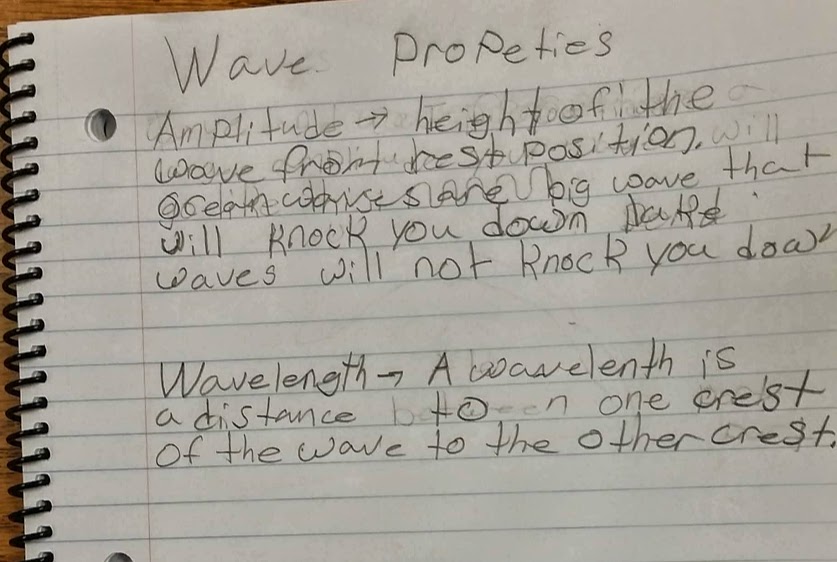 Wave Propeties
Amplitude → height of the
wave from rest position. will
are big wave that
will knock you down
waves will not knock you dow
Wavelength → A wavelenth is
a distance to n one crest
of the wave to the other crest.